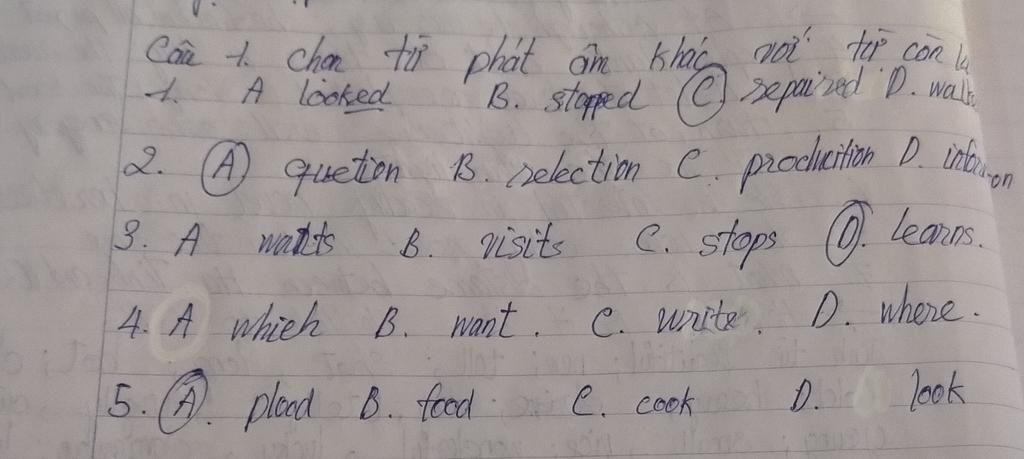 Câu 1. chọn từ phát âm khác với từ còn
1. A looked B. stopped C repaired D.
2. A quetion B. selection C. production D.
3. A waits B. visits C. stops D. learns.
4. A which B. want. C. write. D. where.
5. A. plood B. food C. cook D. look